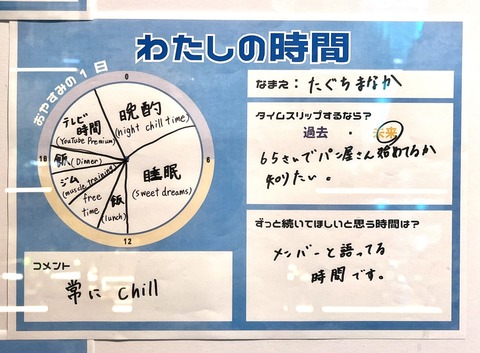 わたしの時間
おやすみの1日
0
6
12
18
晩酌
(night chill time)
睡眠
(sweet dreams)
飯
(lunch)
free
time
ジム
(muscle training)
飯
(Dinner)
テレビ
時間
(YouTube Premium)
なまえ：たぐちまなか
タイムスリップするなら？
過去・未来
65さいでパン屋さん始めてるか
知りたい。
ずっと続いてほしいと思う時間は？
メンバーと語ってる
時間です。
コメント
常に chill